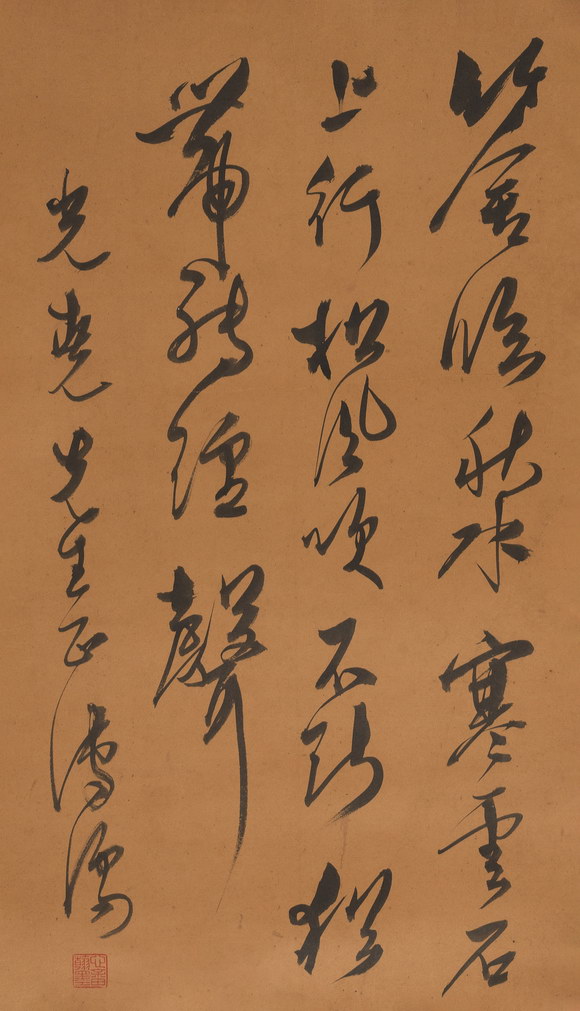 竹舍臨秋水寒雲石
上行松風吹不斷猶
帶轉經聲
光堯先生正溥儒